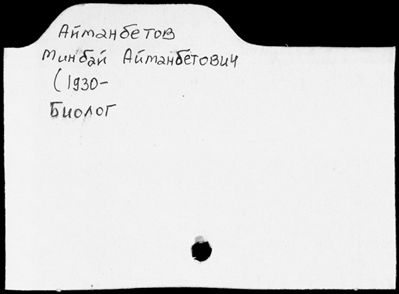 Айманбетов
Минбай Айманбетович
(1930-
Биолог